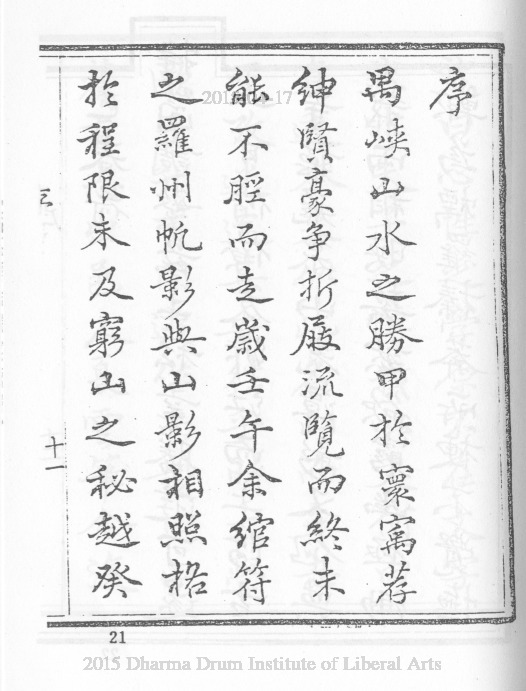 序
禺峽山水之勝甲於寰寓荐
紳賢豪争折屐流覽而終未
能不脛而走歲壬午余綰符
之羅州帆影與山影相照格
於程限未及窮山之秘越癸
三
十一
21
2015 Dharma Drum Institute of Liberal Arts